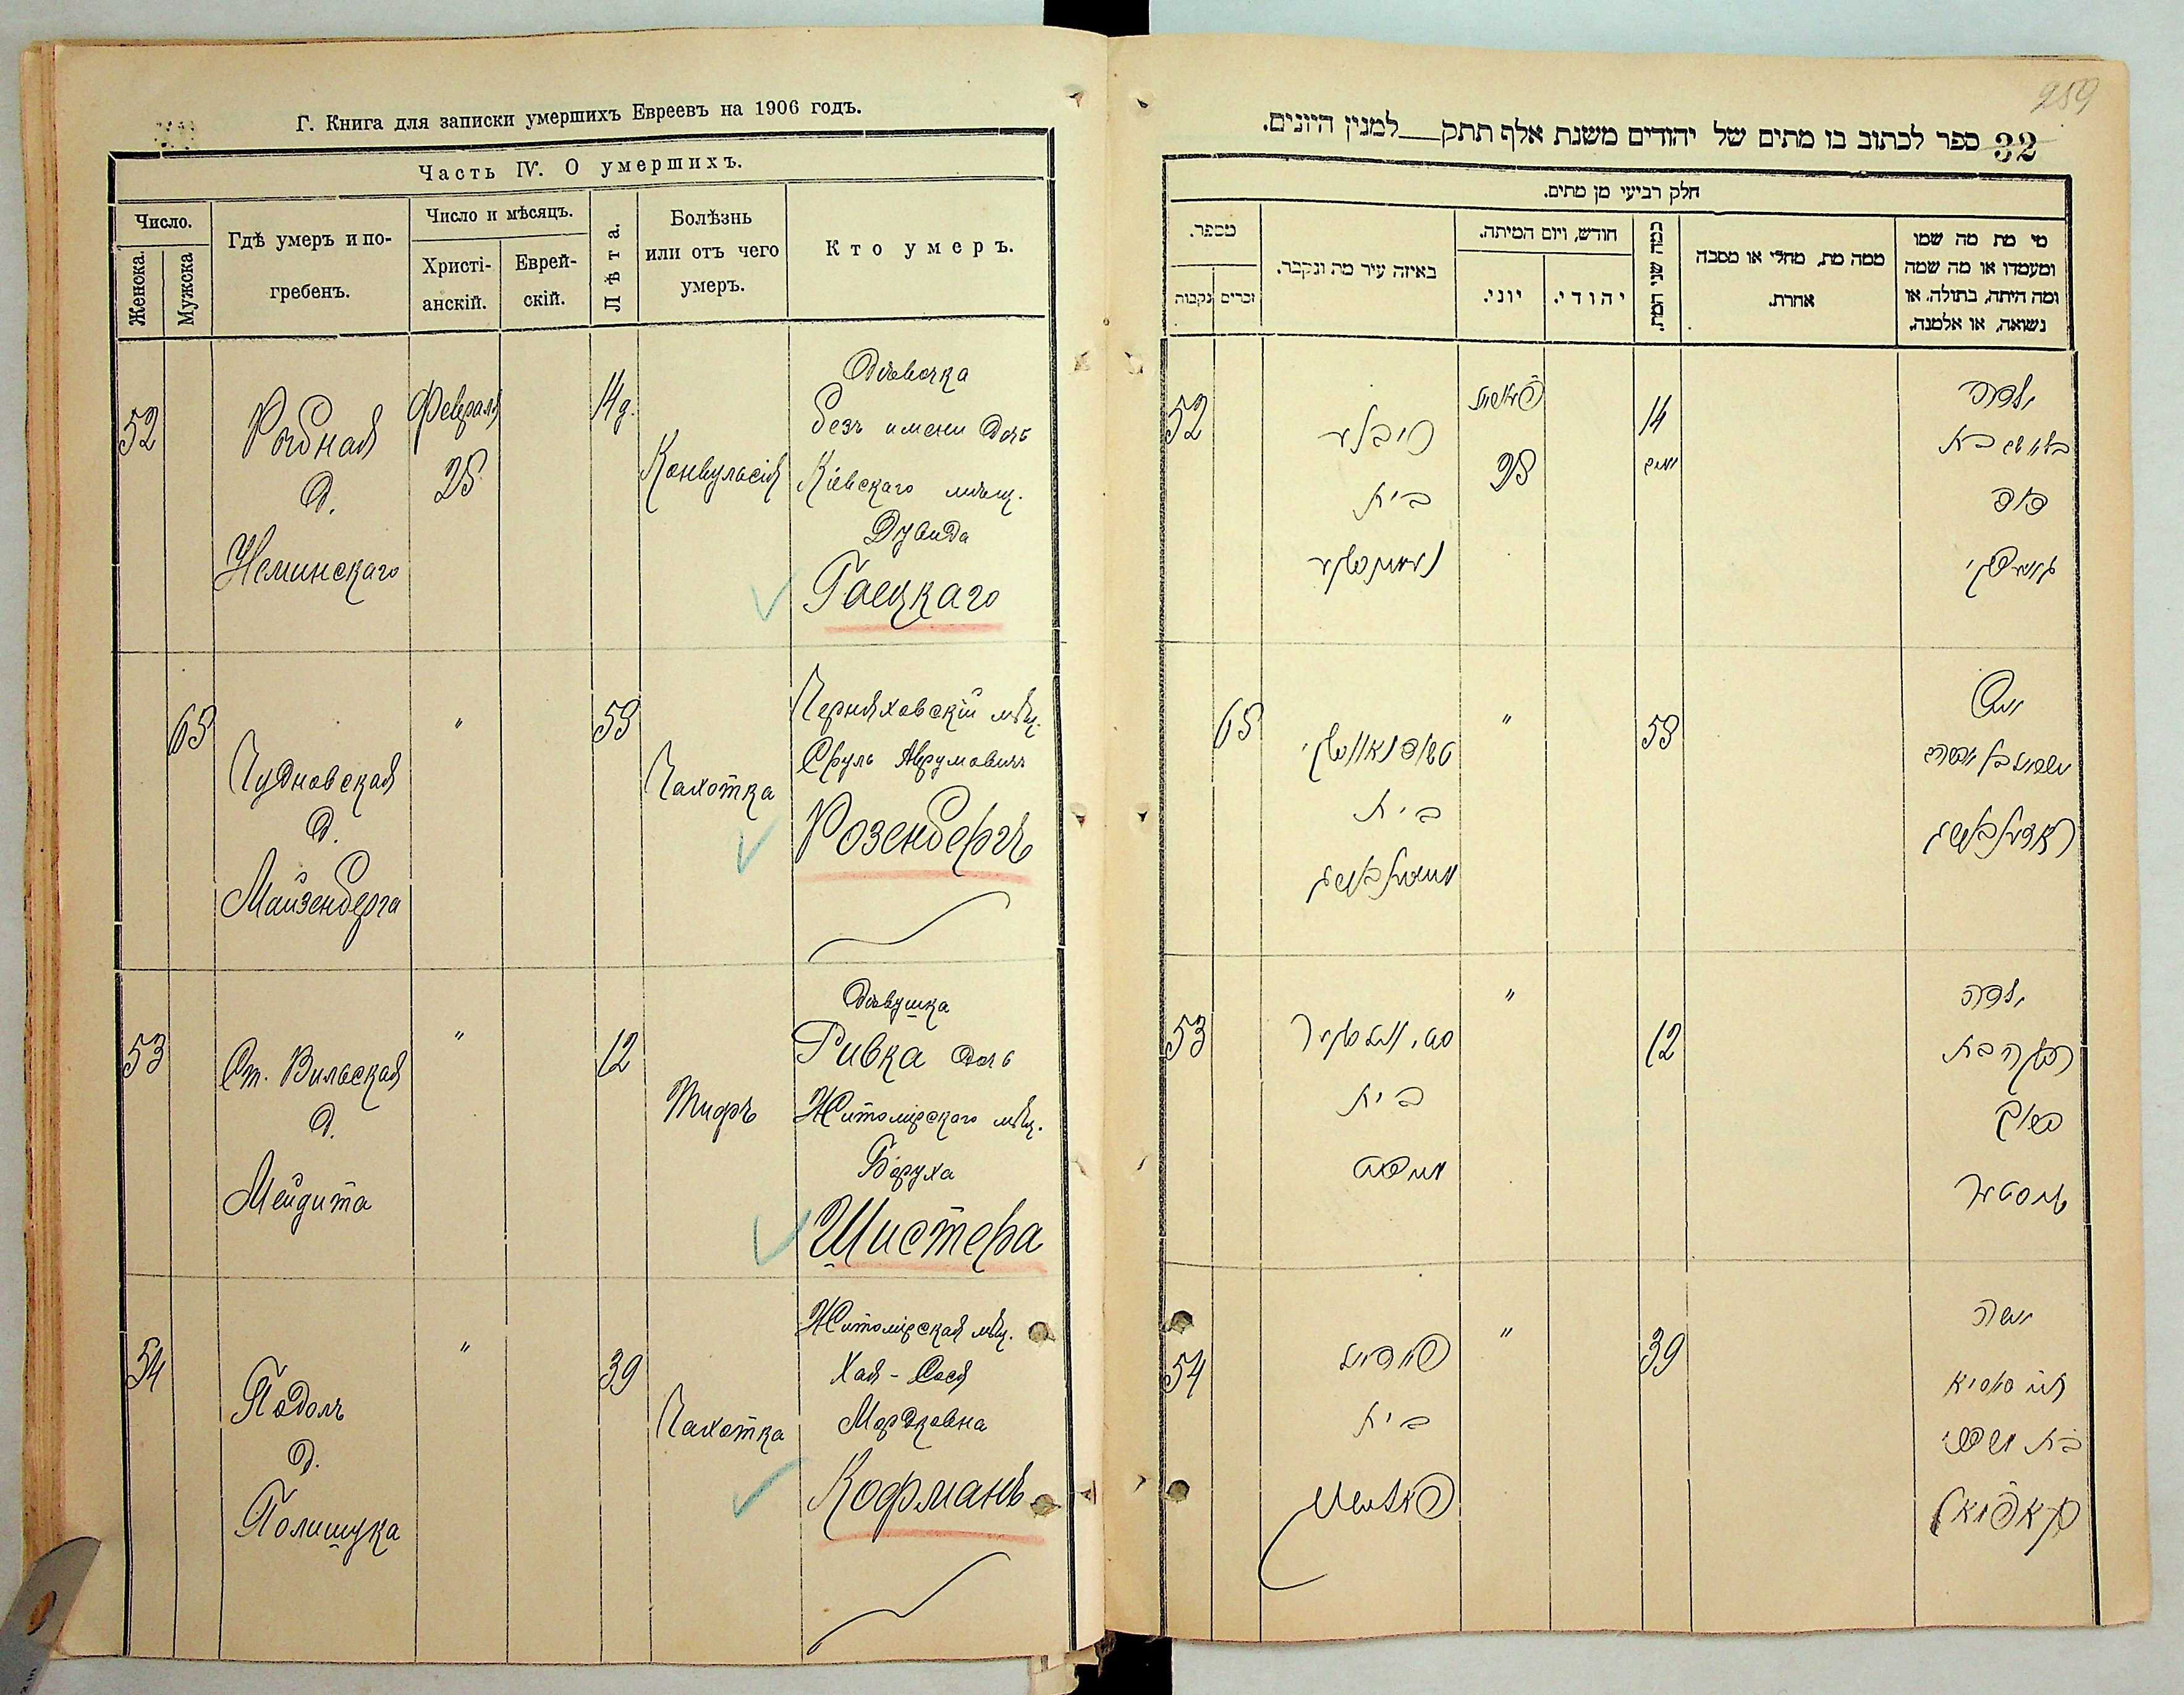 Г. Книга для записки умершихъ Евреевъ на 1906 годъ.
Часть IV. О умершихъ.
Число.
Женска.
Мужска
Гдѣ умеръ и по-
гребенъ.
Число и мѣсяцъ.
Христі-
анскій.
Еврей-
скій.
Лѣта.
Болѣзнь
или отъ чего
умеръ.
Кто умеръ.
52
Рыбная
д.
Неминскаго
Февраля
25
14 д.
Конвульсія
Дѣвочка
безъ имени дочь
Кіевскаго мѣщ.
Дувида
Гаецкаго
65
Чудновская
д.
Майзенберга
"
55
Чахотка
Черняховскій мѣщ.
Сруль Аврумовичъ
Розенбергъ
53
Ст. Вильская
д.
Мейдита
"
12
Тифъ
Дѣвушка
Ривка дочь
Житомірскаго мѣщ.
Боруха
Шистера
54
Подолъ
д.
Полищука
"
39
Чахотка
Житомірская мѣщ.
Хая-Сося
Мордковна
Кофманъ
259
32
ספר לכתוב בו מתים של יהודים משנת אלף תתק למנין היונים.
חלק רביעי מן מתים.
מספר.
נקבות
זכרים
באיזה עיר מת ונקבר.
חודש, ויום המיתה.
יוני.
יהודי.
כמה שני המת.
ממה מת, מחלי או מסבה
אחרת.
מי מת מה שמו
ומעמדו או מה שמה
ומה היתה, בתולה, או
נשואה, או אלמנה.
52
בית
25
14
ילדה
דוד
65
בית
"
55
איש
ראזענבערג
53
בית
"
12
ילדה
רבקה בת
ברוך
שיסטער
54
פאדאל
בית
"
39
אשה
חיה סאסיא
בת מרדכי
קאפמאן